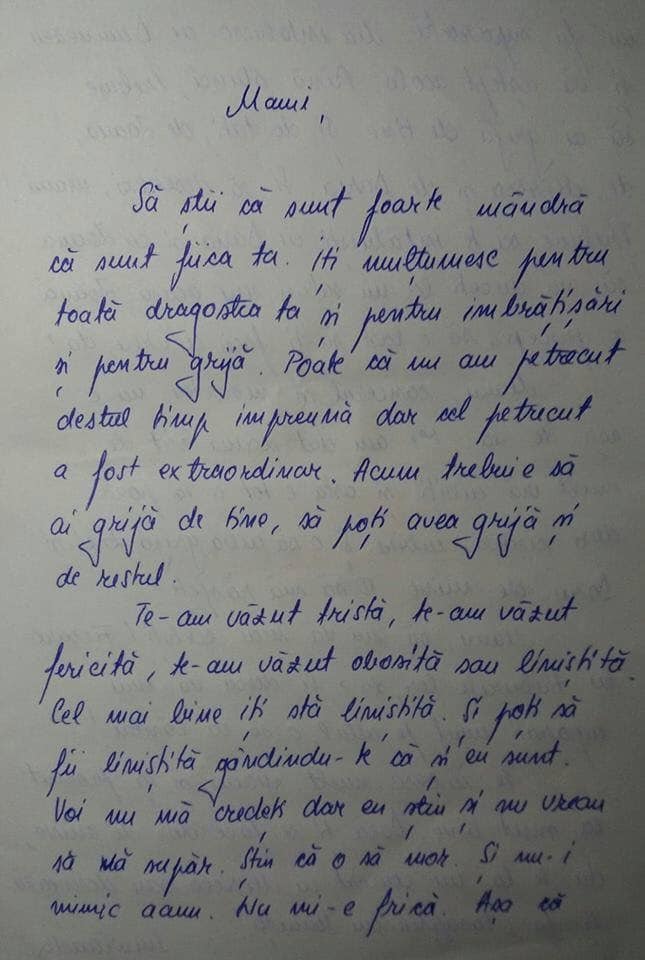 Mami,
Să știi că sunt foarte mândră
că sunt fiica ta. Iți mulțumesc pentru
toată dragostea ta și pentru imbrățișări
și pentru grijă. Poate că nu am petrecut
destul timp impreună dar cel petrecut
a fost extraordinar. Acum trebuie să
ai grijă de tine, să poți avea grijă și
de restul.
Te-am văzut tristă, te-am văzut
fericită, te-am văzut obosită sau liniștită.
Cel mai bine iți stă liniștită. Și poți să
fii liniștită gândindu-te că și eu sunt.
Voi nu mă credeți dar eu știu și nu vreau
să vă supăr. Știu că o să mor. Și nu-i
nimic aanu. Nu mi-e frică. Așa că